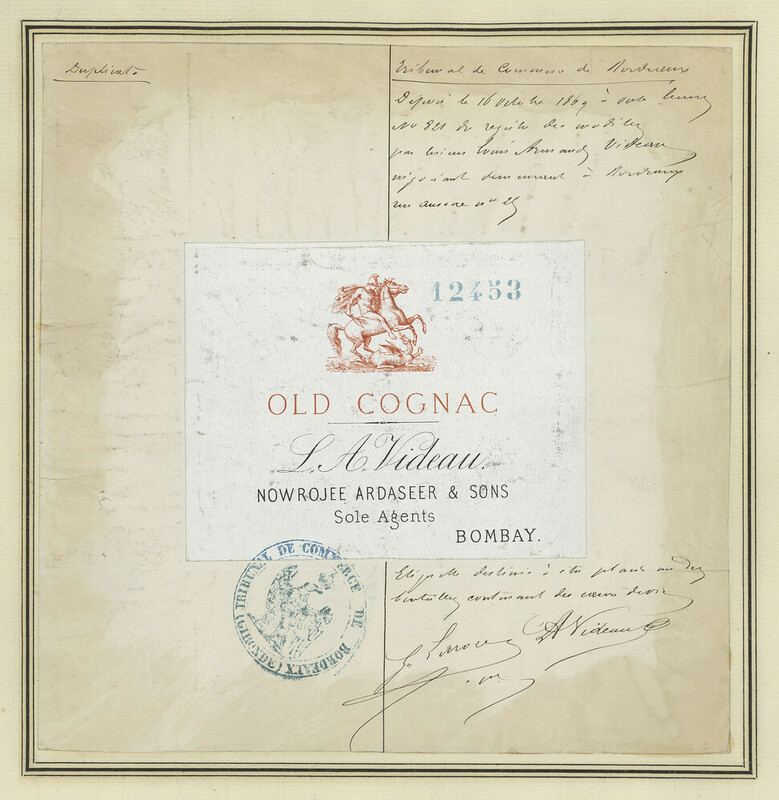 Duplicata
Tribunal de Commerce de Bordeaux
Déposé le 16 octobre 1869 à onze heures
No 821 du registre des modèles
par le sieur Louis Armand Videau
négociant demeurant à Bordeaux
rue no 25
12453
OLD COGNAC
L. A. Videau.
NOWROJEE ARDASEER & SONS
Sole Agents
BOMBAY.
TRIBUNAL DE COMMERCE DE BORDEAUX (GIRONDE)
Etiquette destinée à être placée sur des
bouteilles contenant des eaux de vie
LA Videau